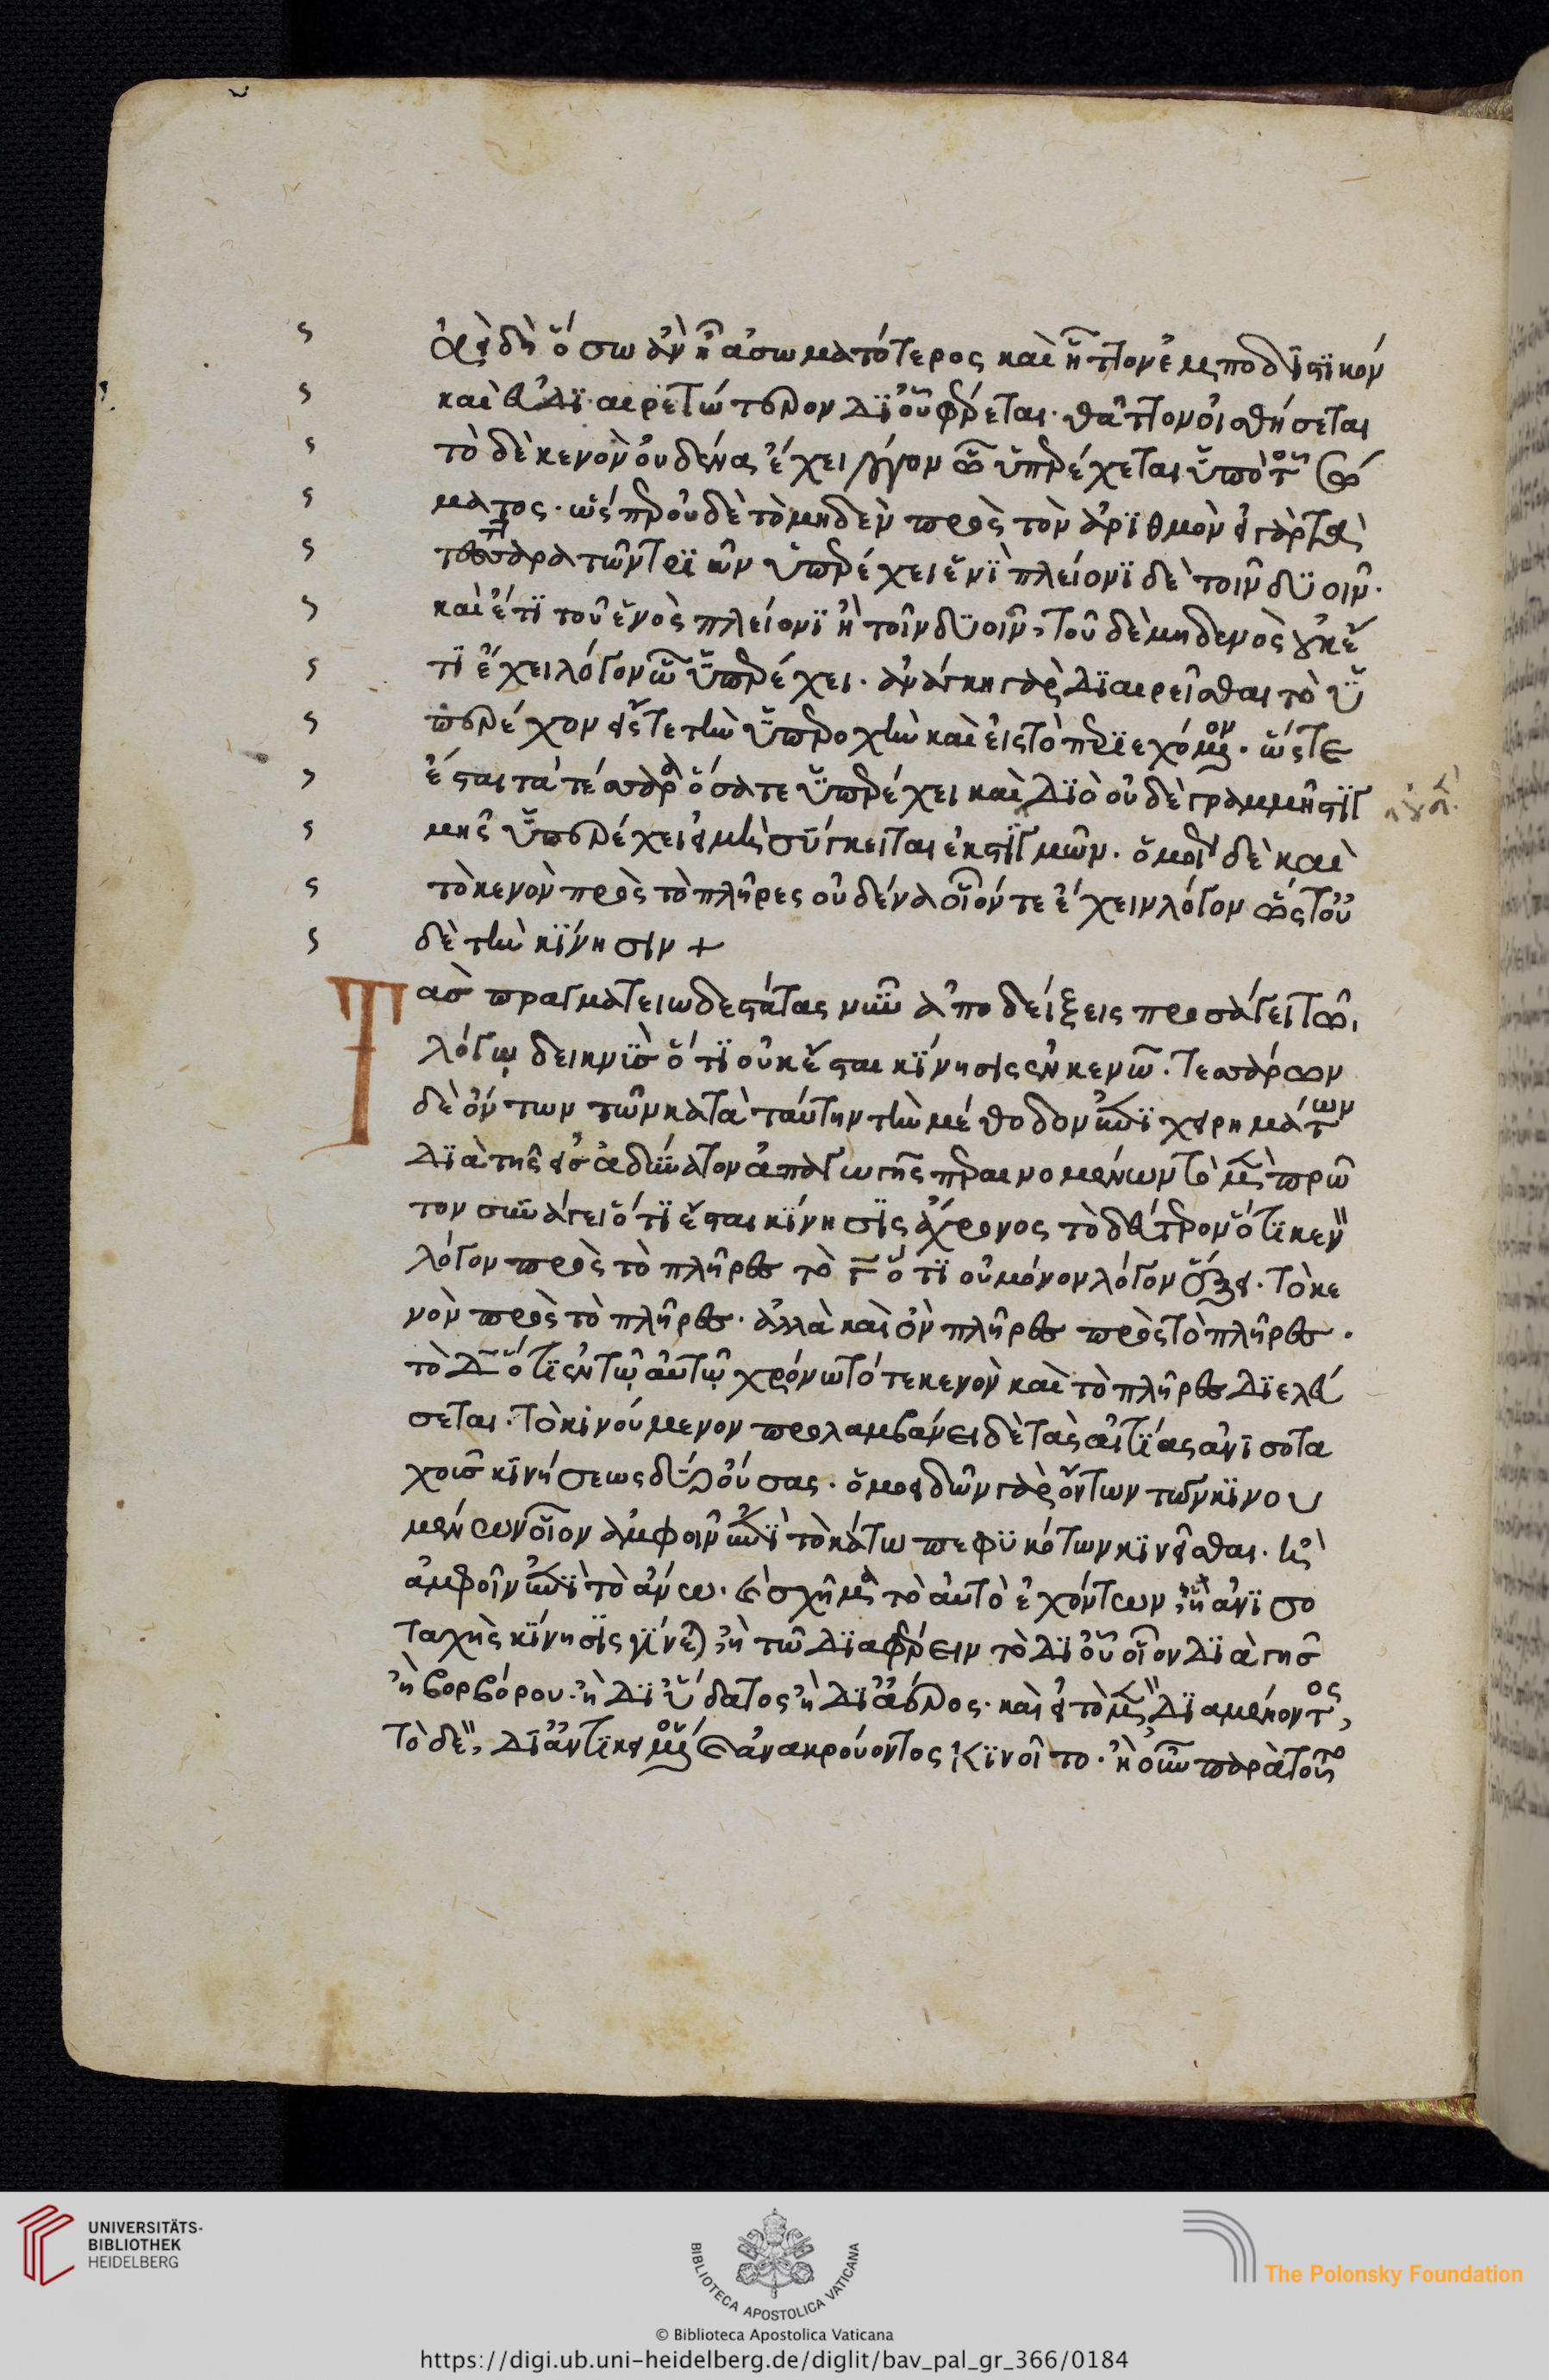 ἀεὶ δὴ ὅσω ἀν ἦ ἀσωματότερος καὶ ἧττον ἐμποδιστικὸν
καὶ εὐδιαιρετώτερον δι οὗ φέρεται· θᾶττον οἰσθήσεται
τὸ δὲ κενὸν οὐδένα ἔχει λόγον ὧ ὑπερέχεται ὑπὸ τοῦ σώ
ματος· ὥσπερ οὐδὲ τὸ μηδὲν πρὸς τὸν ἀριθμὸν εἰ γὰρ τὰ
τέσσαρα τῶν τριῶν ὑπερέχει ἑνὶ πλείονι δὲ τοῖν δυοῖν·
καὶ ἔτι τοῦ ἑνὸς πλείονι ἢ τοῖν δυοῖν, τοῦ δὲ μηδενὸς οὐκέ
τι ἔχει λόγον ὧ ὑπερέχει· ἀνάγκη γὰρ διαιρεῖσθαι τὸ ὑ
περέχον εἴς τε τὴν ὑπεροχὴν καὶ εἰς τὸ περιεχόμενον· ὥστε
ἔσται τὰ τέσσαρα ὅσα τε ὑπερέχει καὶ διὸ οὐδὲ γραμμὴ στιγ
μῆς ὑπερέχει εἰ μὴ σύγκειται ἐκ στιγμῶν· ὁμοίως δὲ καὶ
τὸ κενὸν πρὸς τὸ πλῆρες οὐδένα οἷόν τε ἔχειν λόγον ὥστ οὐ
δὲ τὴν κίνησιν +
Τὰς πραγματειωδεστάτας νῦν ἀποδείξεις προσάγει τῶ
λόγω δεικνὺς ὅτι οὐκ ἔσται κίνησις ἐν κενῶ· τεσσάρων
δὲ ὄντων τῶν κατὰ ταύτην τὴν μέθοδον ἐπιχειρημάτων
διὰ τῆς εἰς ἀδύνατον ἀπαγωγῆς περαινομένων τὸ μὲν πρῶ
τον συνάγει ὅτι ἔσται κίνησις ἄχρονος τὸ δεύτερον ὅτι κενὸν
λόγον πρὸς τὸ πλῆρες τὸ γ ὅτι οὐ μόνον λόγον ἕξει· τὸ κε
νὸν πρὸς τὸ πλῆρες· ἀλλὰ καὶ ὃν πλῆρες πρὸς τὸ πλῆρες·
τὸ δ ὅτι ἐν τῶ αὐτῶ χρόνω τό τε κενὸν καὶ τὸ πλῆρες διελεύ
σεται· τὸ κινούμενον προλαμβάνει δὲ τὰς αἰτίας ἀνισοτα
χοῦς κινήσεως δύο οὔσας· ὁμοειδῶν γὰρ ὄντων τῶν κινου
μένων οἷον ἀμφοῖν ἐπὶ τὸ κάτω πεφυκότων κινεῖσθαι· ἢ
ἀμφοῖν ἐπὶ τὸ ἄνω· καὶ σχῆμα τὸ αὐτὸ ἐχόντων, ἢ ἀνισο
ταχὴς κίνησις γίνεται, ἢ τῶ διαφέρειν τὸ δι οὗ οἷον διὰ γῆς
ἢ βορβόρου· ἢ δι ὕδατος ἢ δι ἀέρος· καὶ εἰ τὸ μὲν διαμένοντος,
τὸ δὲ, δι ἀντικειμένου καὶ ἀνακρούοντος κινοῖτο· ἢ οὖν παρὰ τοῦτο